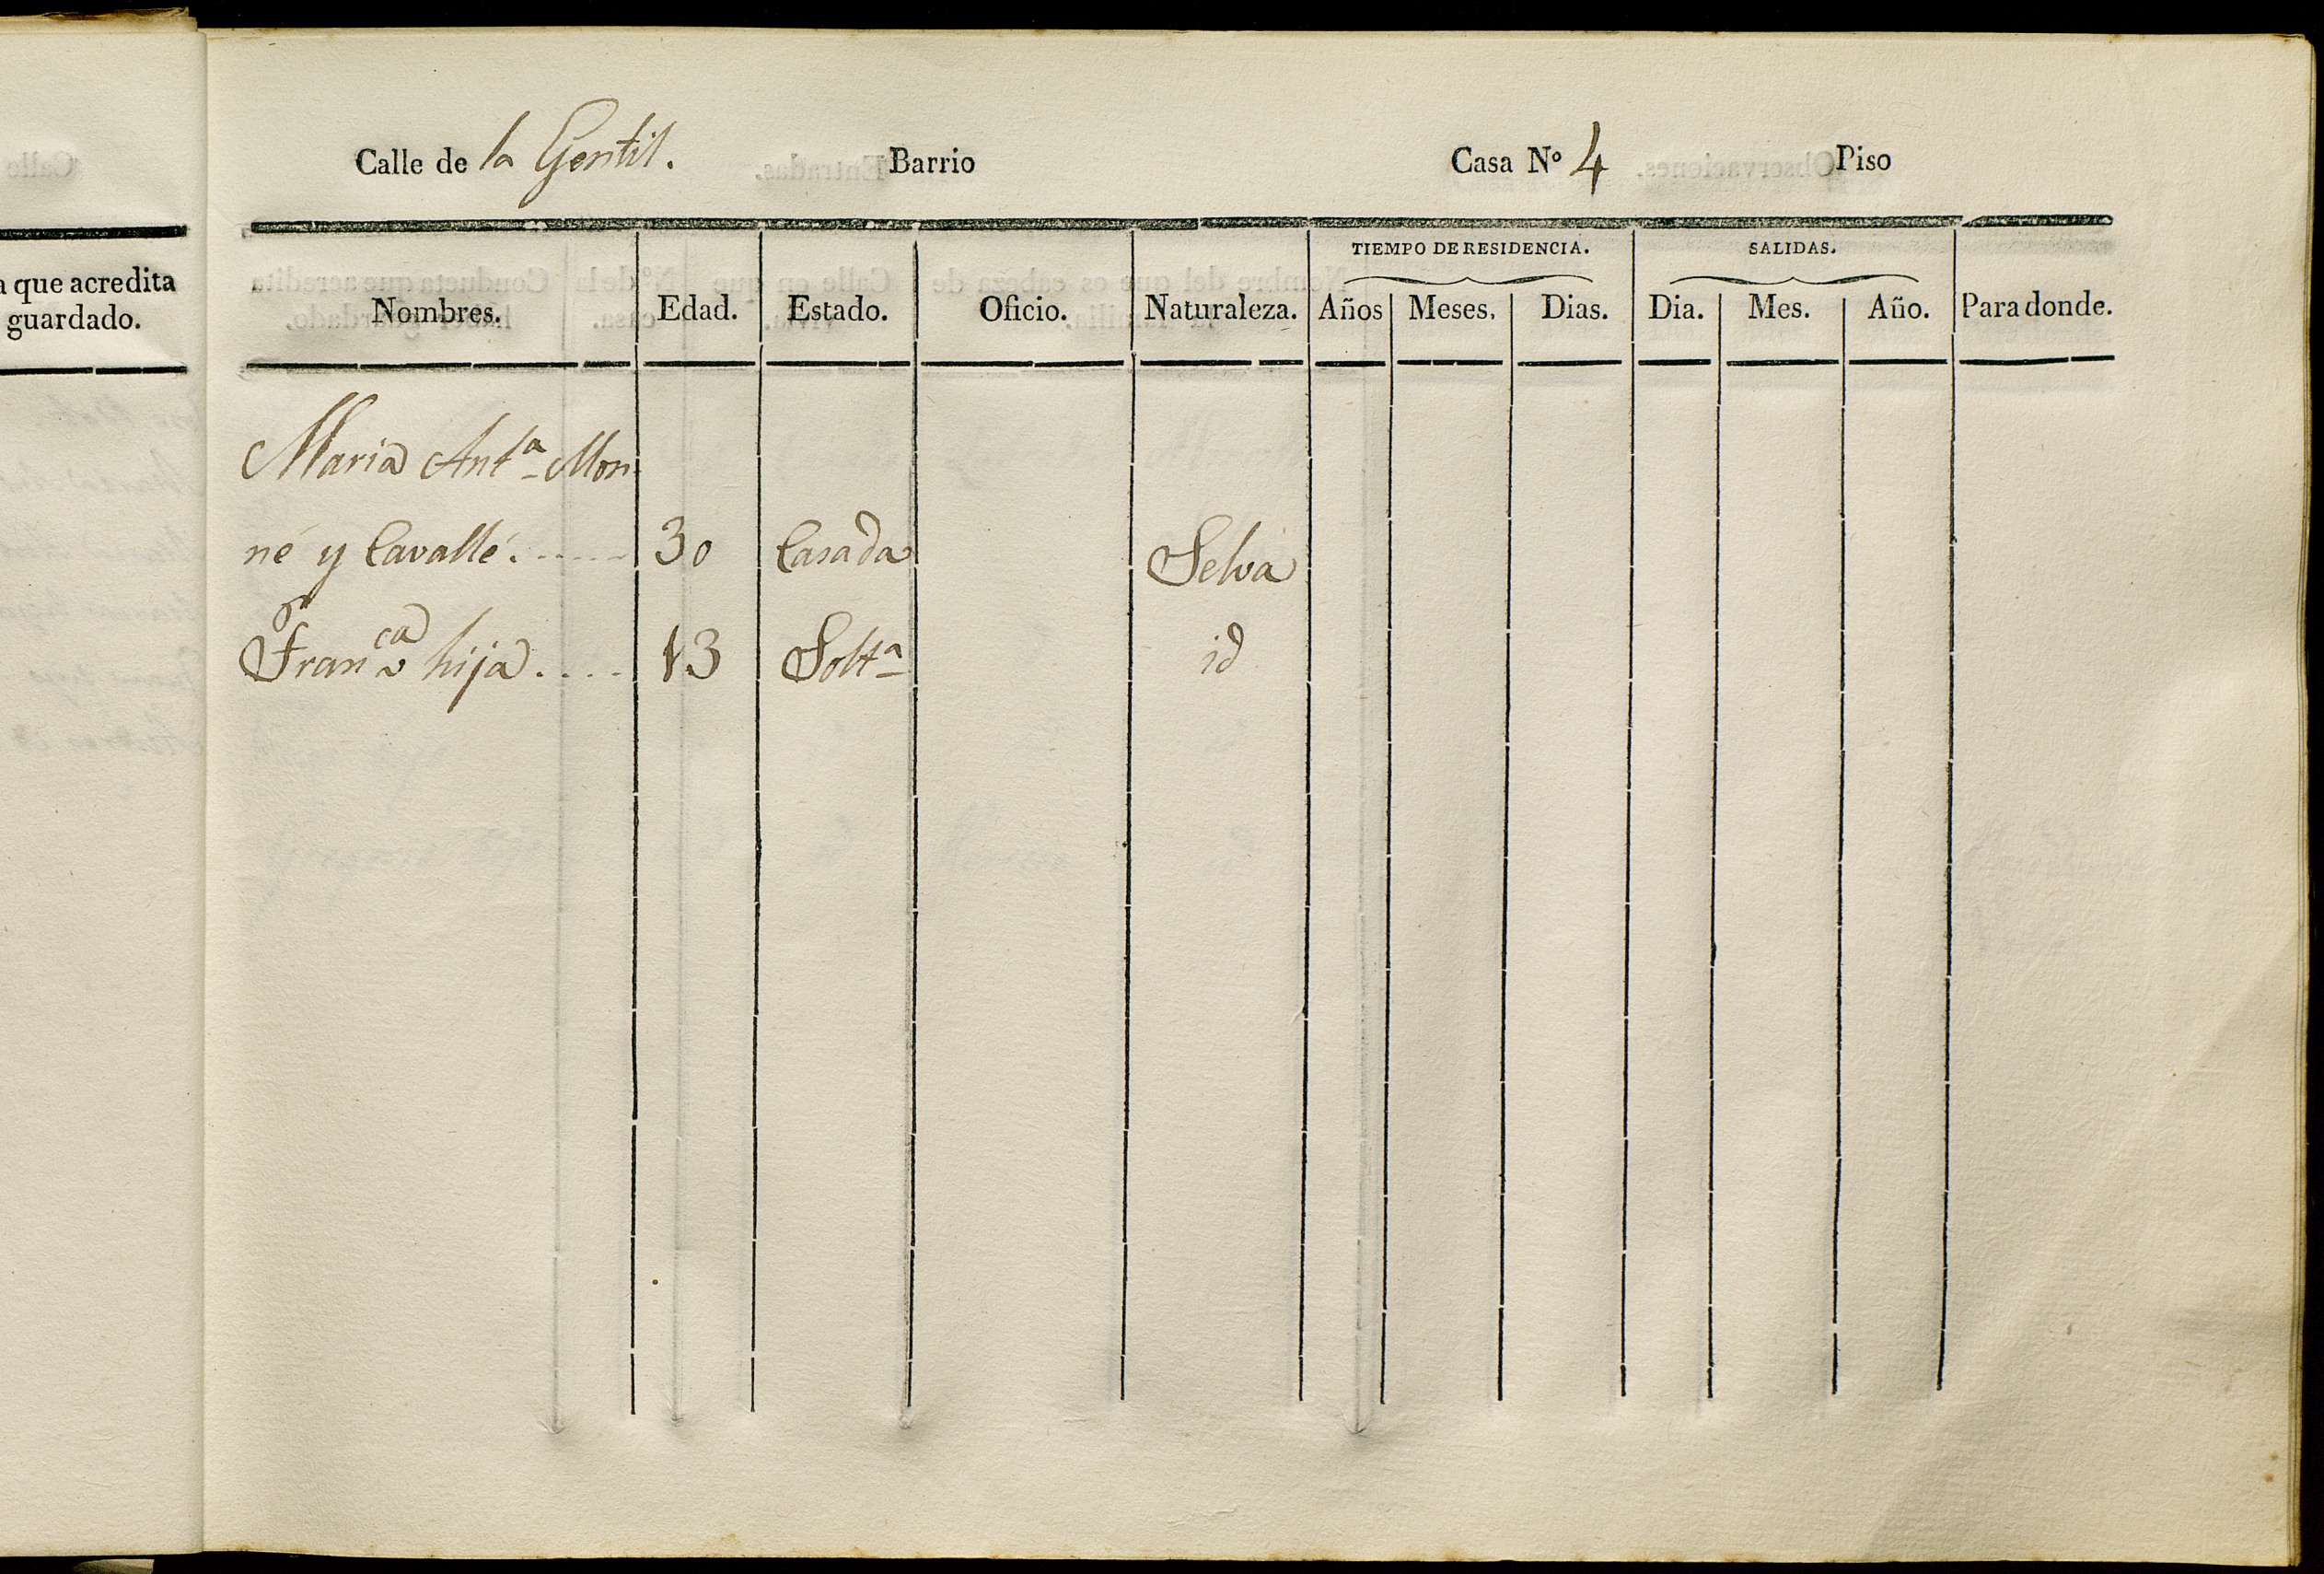 a que acredita
guardado.
Calle de la Gentil. Barrio Casa Nº 4 Piso
TIEMPO DE RESIDENCIA. SALIDAS.
Nombres. Edad. Estado. Oficio. Naturaleza. Años Meses. Dias. Dia. Mes. Año. Para donde.
Maria Antª Mon
né y Cavallé. 30 Casada Selva
Franca hija 13 Soltª id